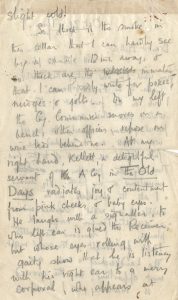 slight cold!
So thick is the smoke in
this cellar that I can hardly see
by a candle 12 ins. away, &
so thick are the inmates
that I can hardly write for pokes,
nudges & jolts. On my left
the Coy. Commander snores on a
bench: other officers repose on
wire beds behind me. At my
right hand, Kellett, a delightful
servant of A Coy in The Old
Days radiates joy & contentment
from pink cheeks & baby eyes.
He laughs with a signaller, to
whose left ear is glued the Receiver;
but whose eyes rolling with
gaiety show that he is listening
with his right ear to a merry
corporal, who appears at